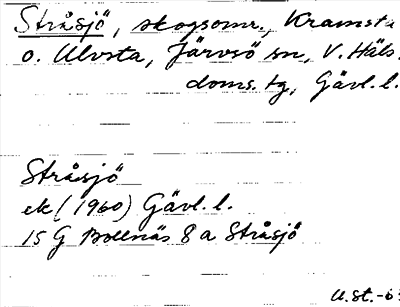 Stråsjö, skogsomr., Kramsta
o. Ulvsta, Järvsö sn, V. Häls.
doms. tg, Gävl. l.
Stråsjö
ek (1960) Gävl. l.
15 G Bollnäs 8 a Stråsjö
U.St.-6